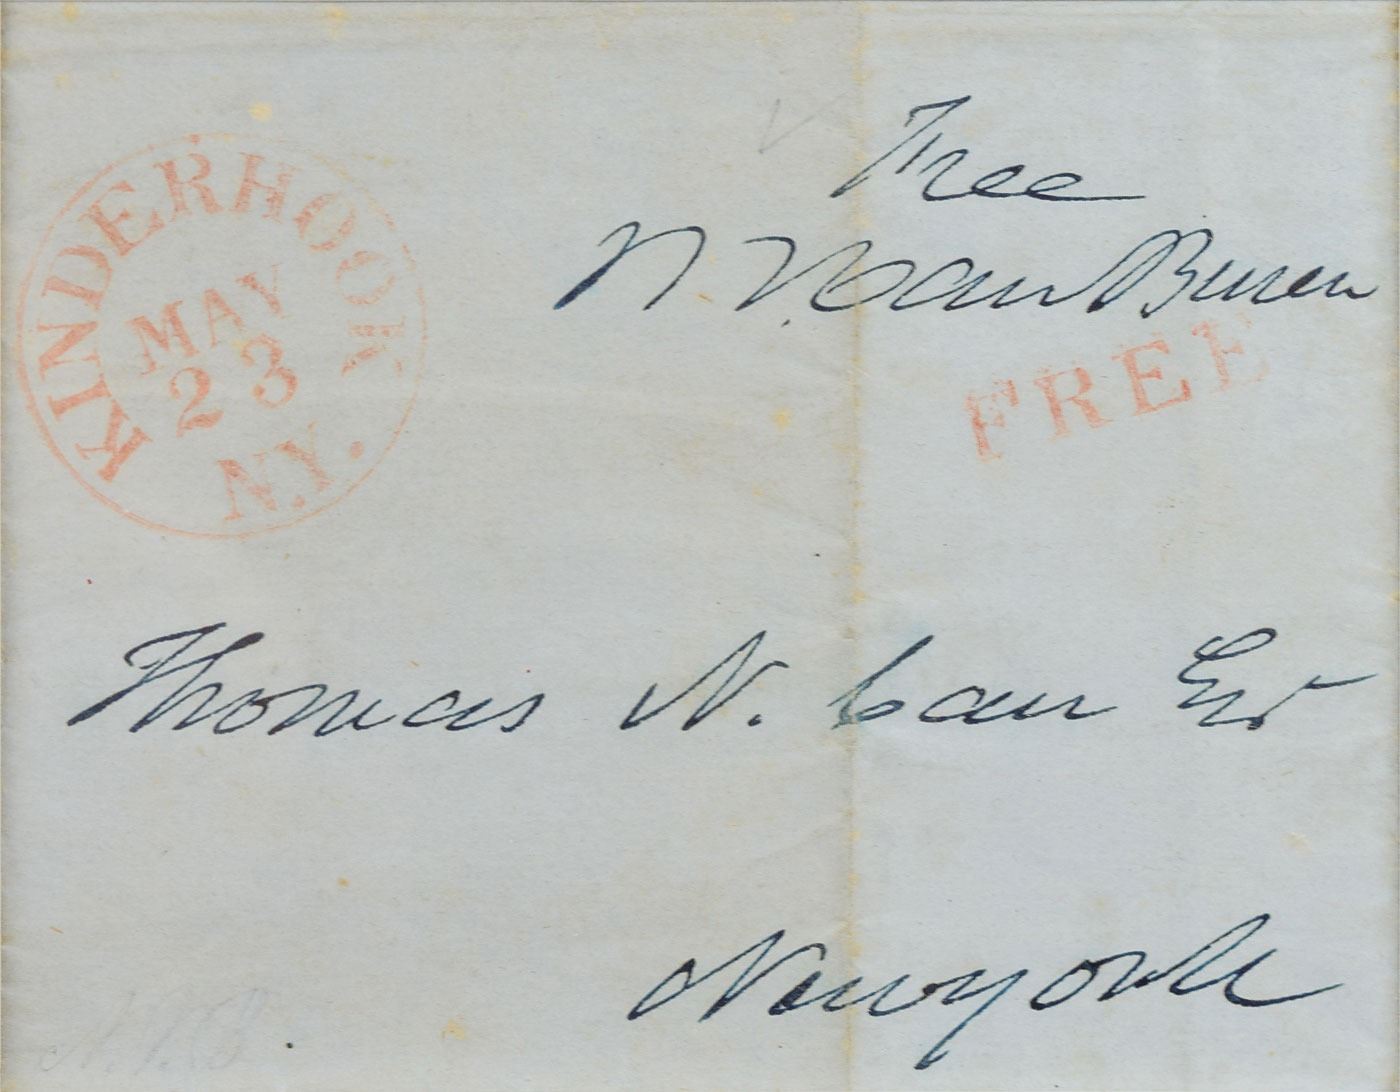 KINDERHOOK
MAY
23
N.Y.
Free
M. Van Buren
FREE
Thomas N. Carr Esr
New york